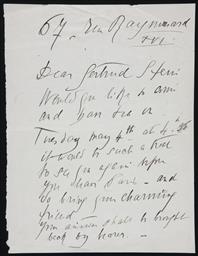 67, Rue Raynouard
XVI.
Dear Gertrud Stein
Would you like to come
and have tea on
Tuesday May 4th at 4.
it would be such a treat
to see you again before
you leave Paris - and
do bring your charming
friend
back by